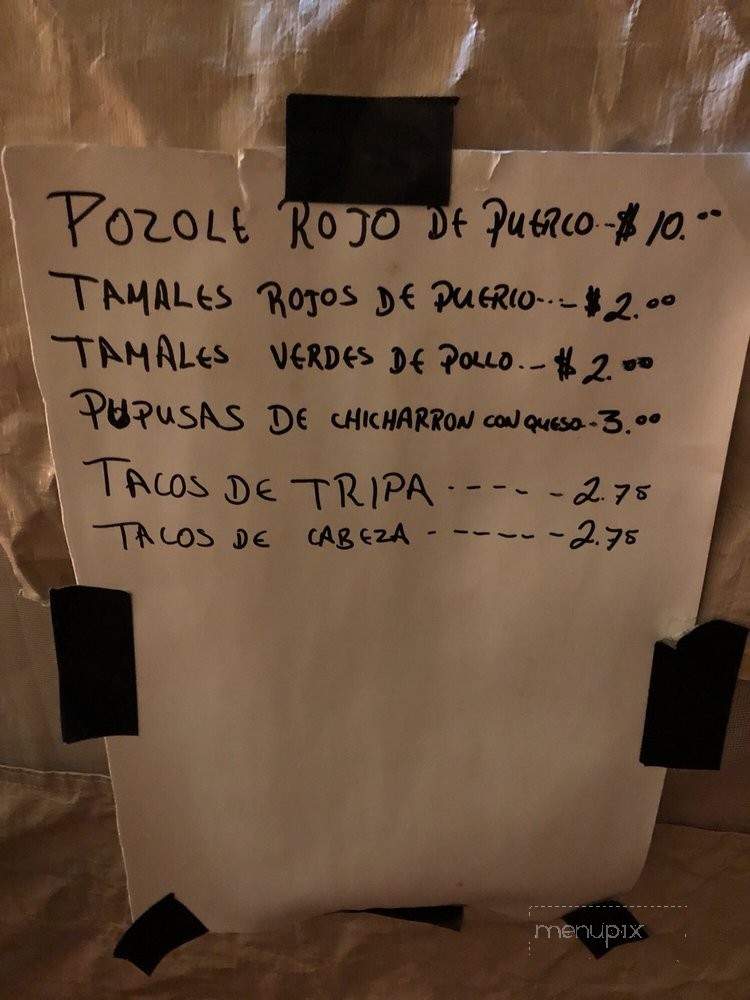 POZOLE ROJO DE PUERCO--$ 10.00
TAMALES ROJOS DE PUERCO---$ 2.00
TAMALES VERDES DE POLLO.-$ 2.00
PUPUSAS DE CHICHARRON CON QUESO--3.00
TACOS DE TRIPA ----- 2.75
TACOS DE CABEZA ------ 2.75
menupix